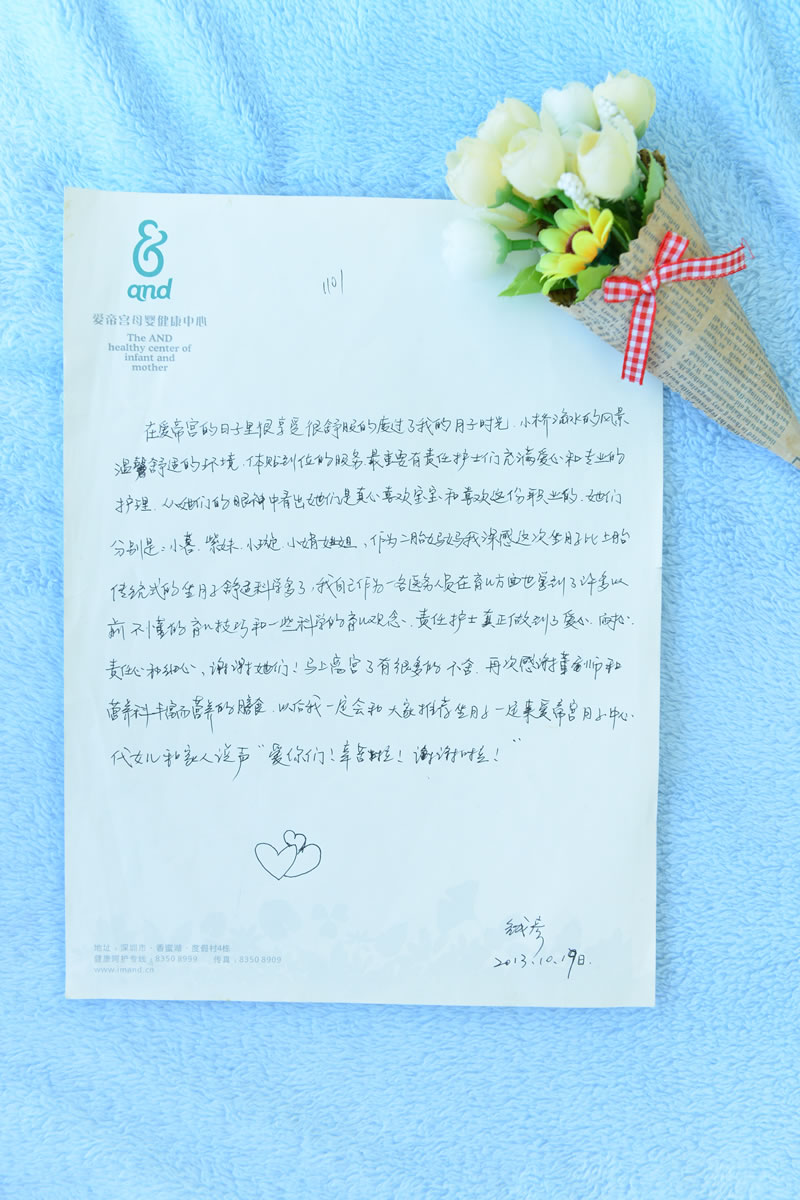 &
and
爱帝宫母婴健康中心
The AND
healthy center of
infant and
mother
1101
在爱帝宫的日子里很享受很舒服的度过了我的月子时光,小桥海水的风景
温馨舒适的环境,体贴到位的服务,最重要有责任护士们充满爱心和专业的
护理,从她们的眼神中看出她们是真心喜欢宝宝和喜欢这份职业的,她们
分别是:小喜、紫妹、小琁、小娟姐姐,作为二胎妈妈我深感这次坐月子比上胎
传统式的坐月子舒适科学多了,我自己作为一名医务人员在育儿方面也学到了许多以
前不懂的育儿技巧和一些科学的育儿观念,责任护士真正做到了爱心、耐心、
责任心和细心,谢谢她们!马上离宫了有很多的不舍,再次感谢董厨师和
营养科丰富而营养的膳食,以后我一定会和大家推荐坐月子一定来爱帝宫月子中心
代女儿和家人说声“爱你们!辛苦啦!谢谢啦!”
2013.10.19日.
地址:深圳市·香蜜湖·度假村4栋
健康呵护专线:8350 8999 传真:8350 8909
www.imand.cn